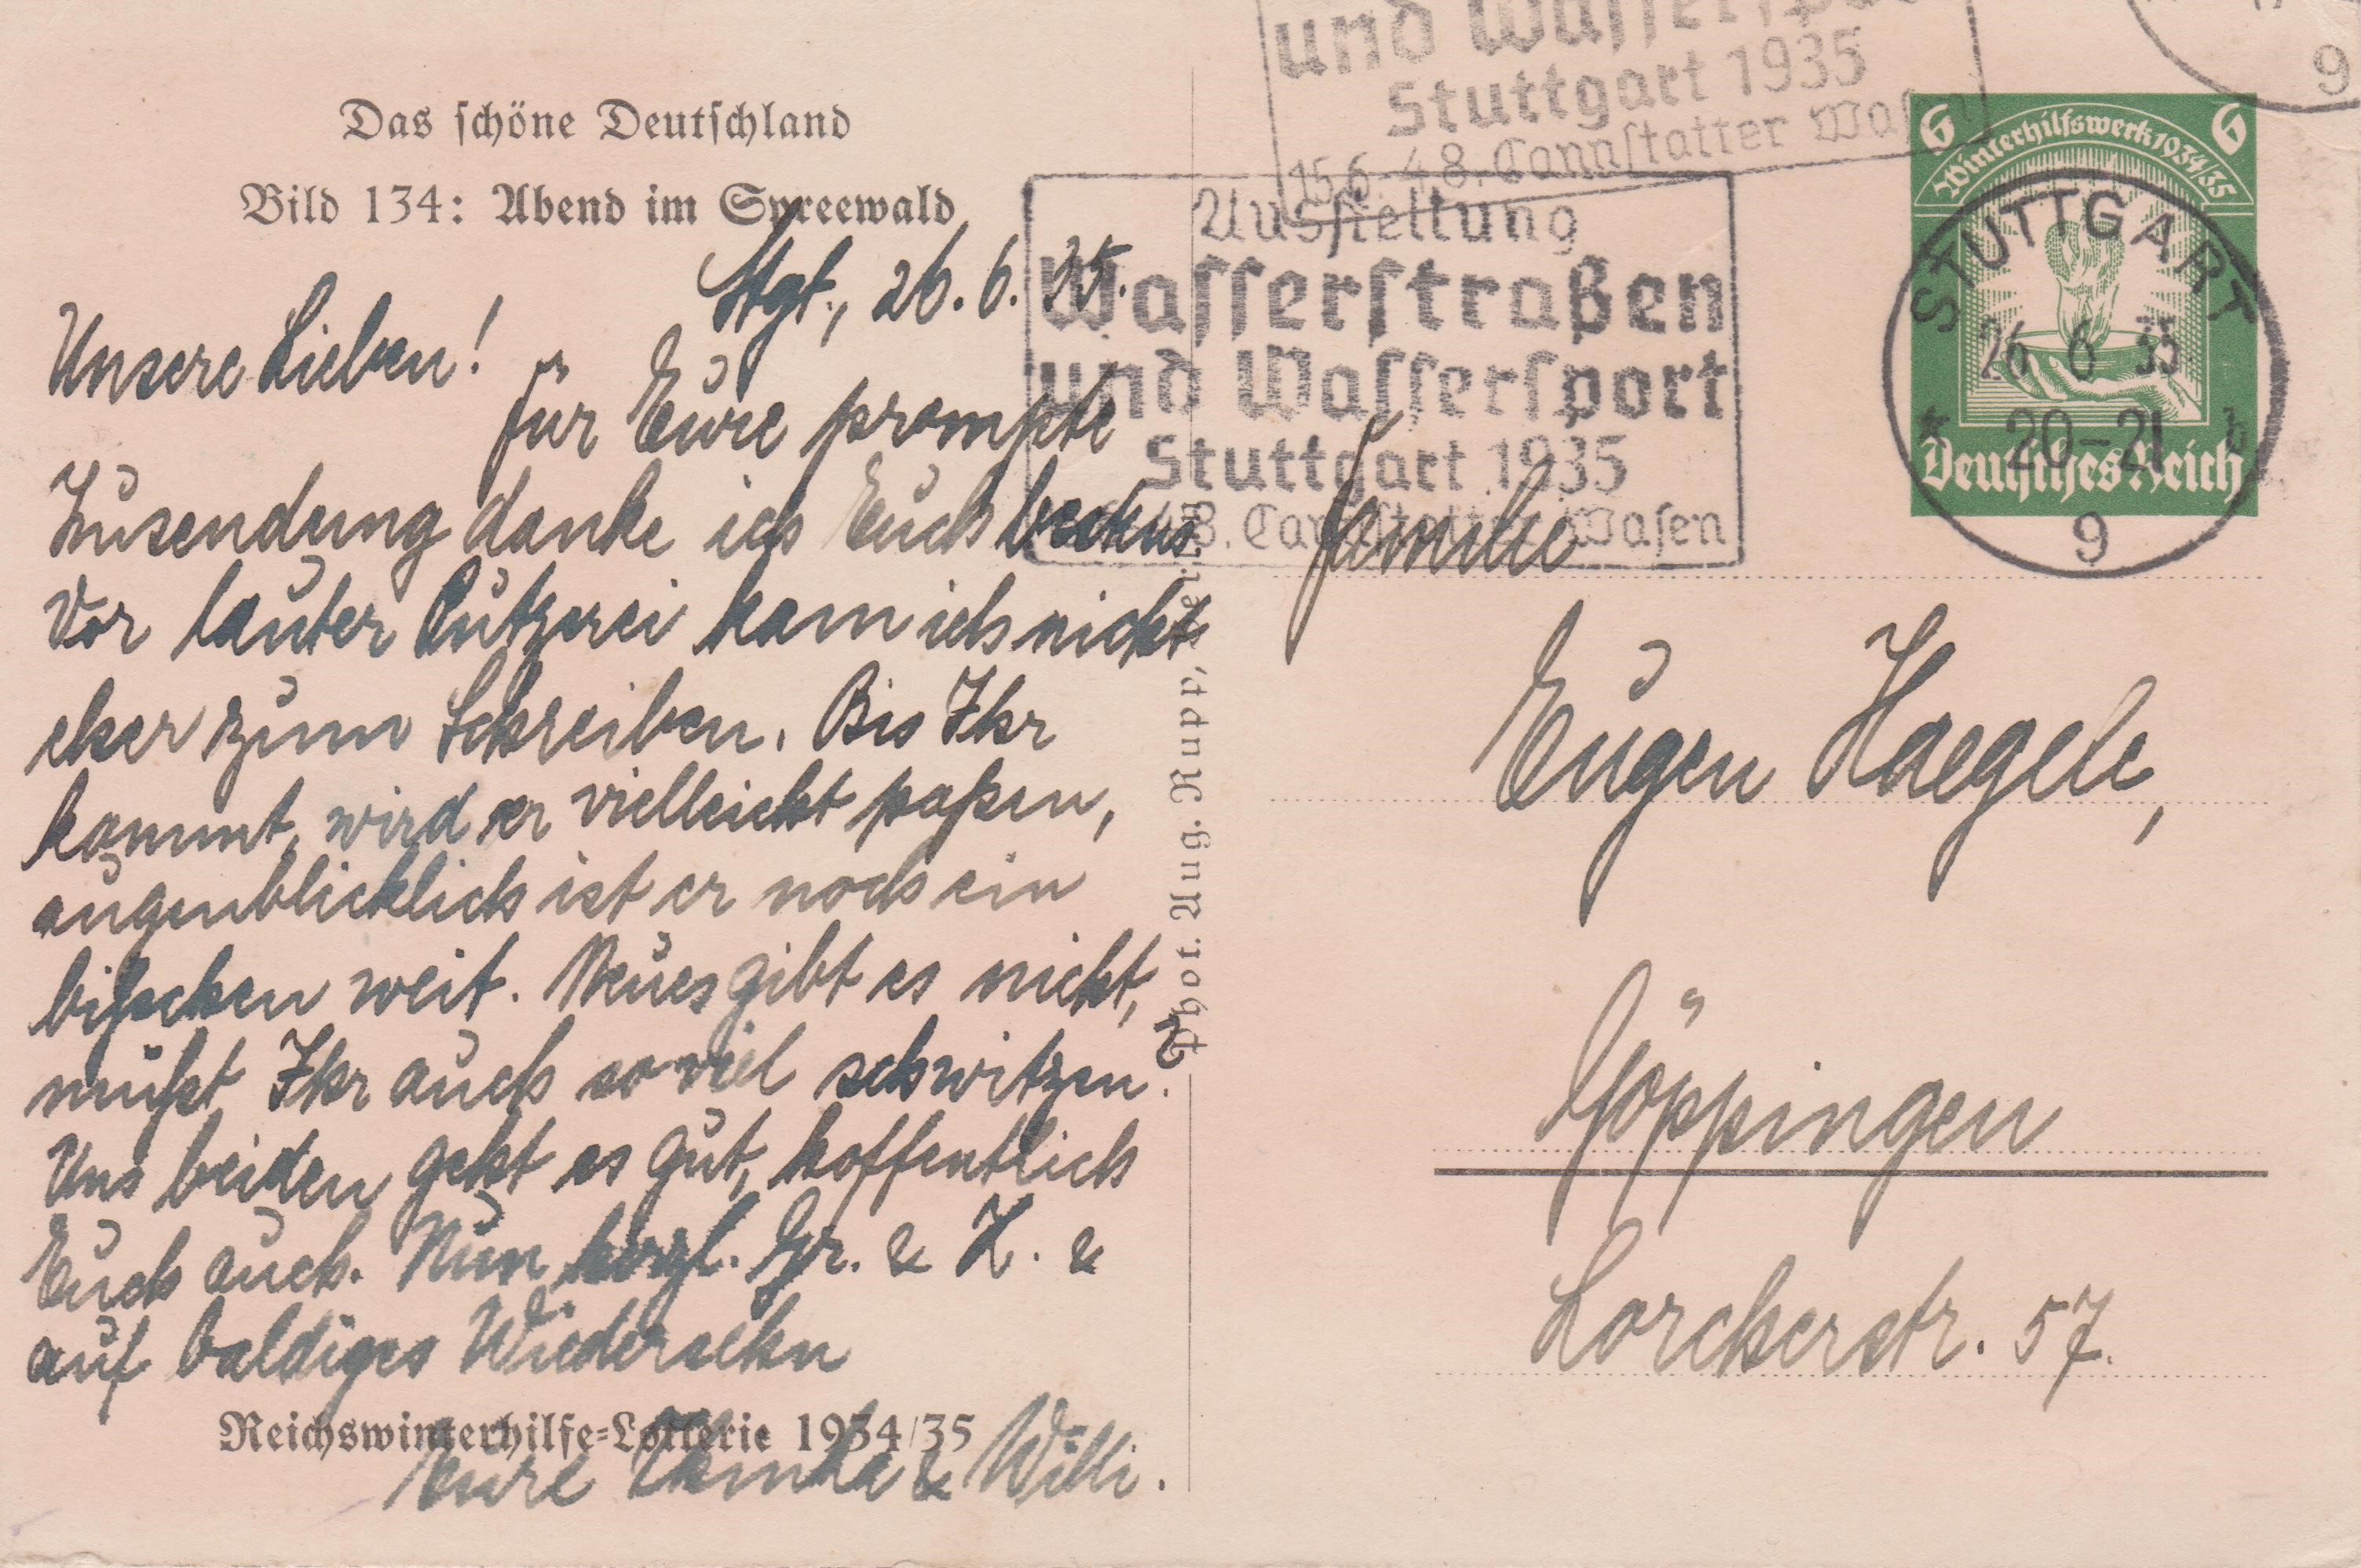 Das schöne Deutschland
Bild 134: Abend im Spreewald
Stgt., 26.6.35.
Unsere Lieben!
für Eure prompte
Zusendung danke ich Euch
Vor lauter Putzerei kam ich nicht
eher zum Schreiben. Bis Ihr
kommt, wird er vielleicht paßen,
augenblicklich ist er noch ein
bißchen weit. Neues gibt es nicht,
müßt Ihr auch so viel schwitzen?
Uns beiden geht es gut, hoffentlich
Euch auch. Nun herzl. Gr. & K. &
auf baldiges Wiedersehn
Eure & Willi.
Reichswinterhilfe-Lotterie 1934/35
Phot. Aug. Rupp,
und Wassersport
Stuttgart 1935
15.6.-4.8. Cannstatter Wasen
Ausstellung
Wasserstraßen
und Wassersport
Stuttgart 1935
8. Cannstatter Wasen
9
6 Winterhilfswerk 1934/35 6
Deutsches Reich
STUTTGART
26.6.35
20-21
9
Familie
Eugen Haegele,
Göppingen
Lorcherstr. 57.